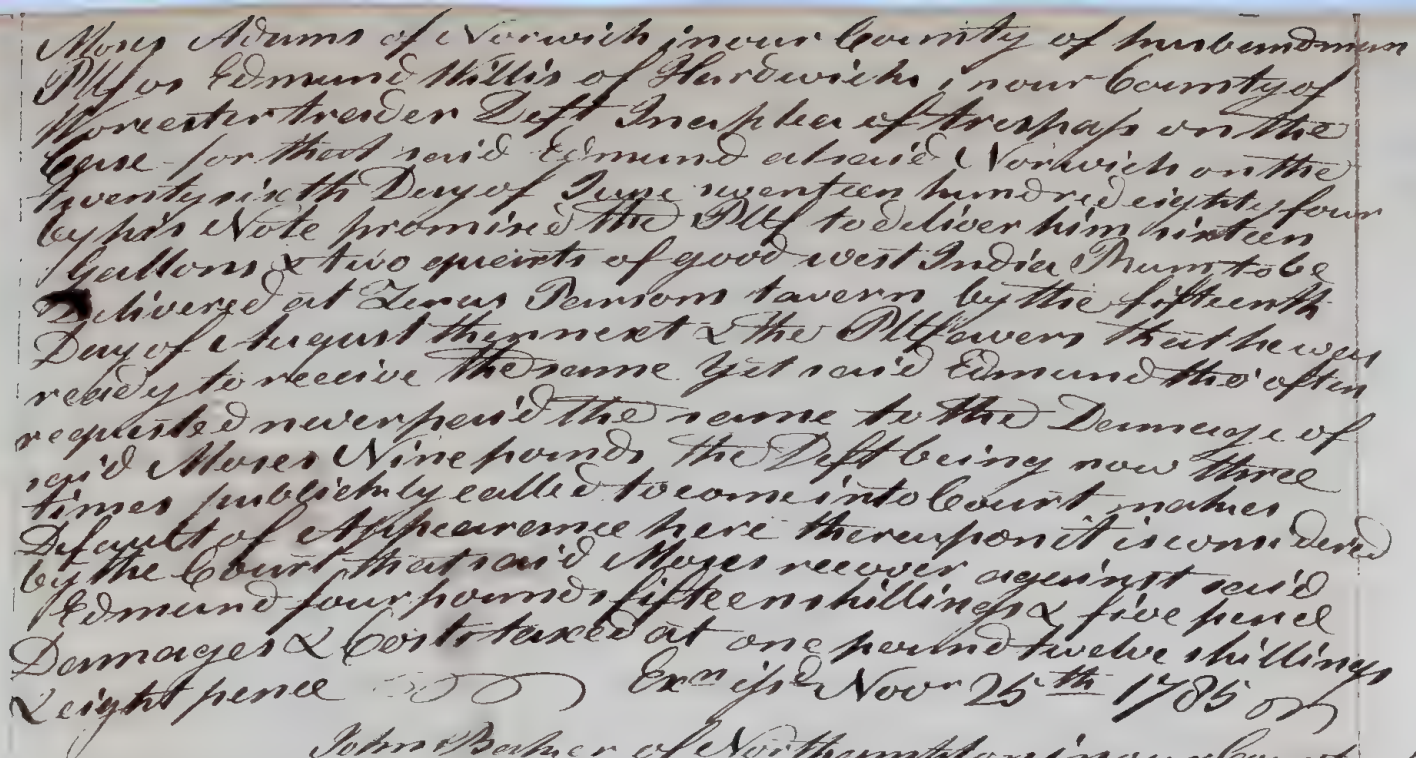 Moses Adams of Norwich in our County of husbandman
Plt vs Edmund Willis of Hardwick in our County of
Worcester trader Deft In a plea of trespass on the
Case for that said Edmund at said Norwich on the
twenty sixth Day of June seventeen hundred eighty four
by his Note promised the Plt to deliver him sixteen
Gallons & two quarts of good west India Rum to be
Delivered at Zenas Parsons tavern by the fifteenth
Day of August then next & the Plt avers that he was
ready to receive the same Yet said Edmund tho' often
requested never paid the same to the Damage of
said Moses Nine pounds the Deft being now three
times publickly called to come into Court makes
Default of Appearance here thereupon it is considered
by the Court that said Moses recover against said
Edmund four pounds fifteen shillings & five pence
Damages & Costs taxed at one pound twelve shillings
& eight pence Exn issd Novr 25th 1785
John Baker of Northampton in our